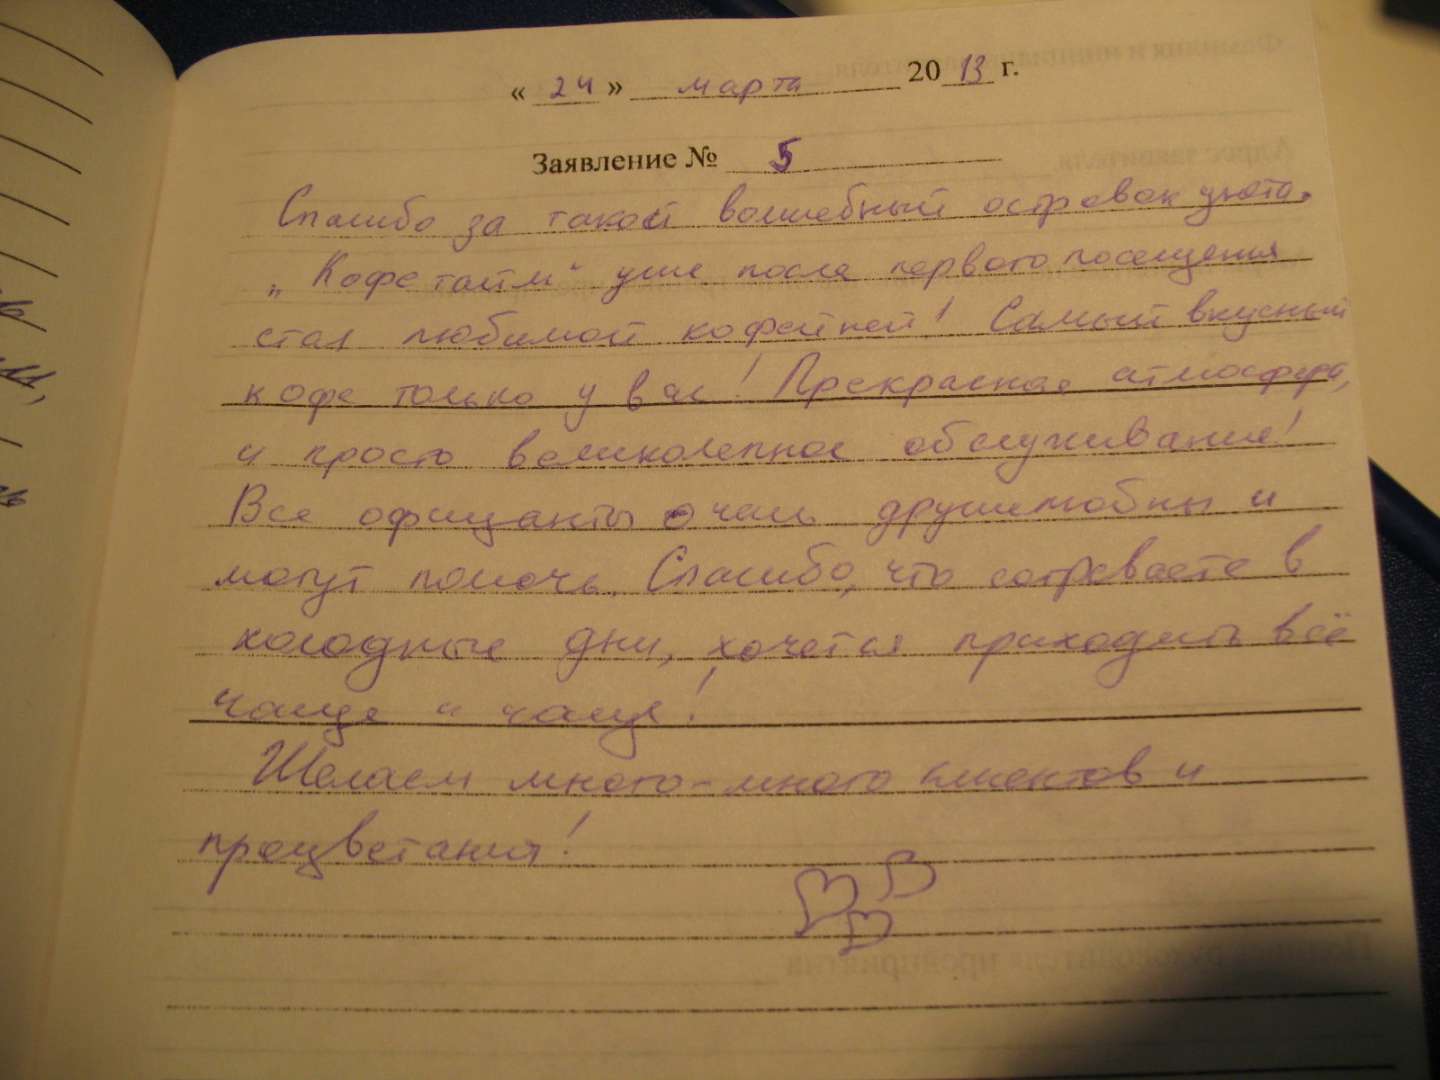 « 24 » марта 2013 г.
Заявление № 5
Спасибо за такой волшебный островок уюта.
„Кофе тайм“ уже после первого посещения
стал любимой кофейней! Самый вкусный
кофе только у вас! Прекрасная атмосфера,
и просто великолепное обслуживание!
Все официанты очень дружелюбны и
могут помочь. Спасибо, что согреваете в
холодные дни, хочется приходить всё
чаще и чаще!
Желаем много-много клиентов и
процветания!